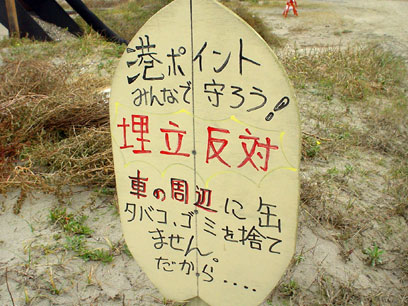 港ポイント
みんなで守ろう!
埋立反対
車の周辺に缶
タバコ、ゴミを捨て
ません。
だから.....